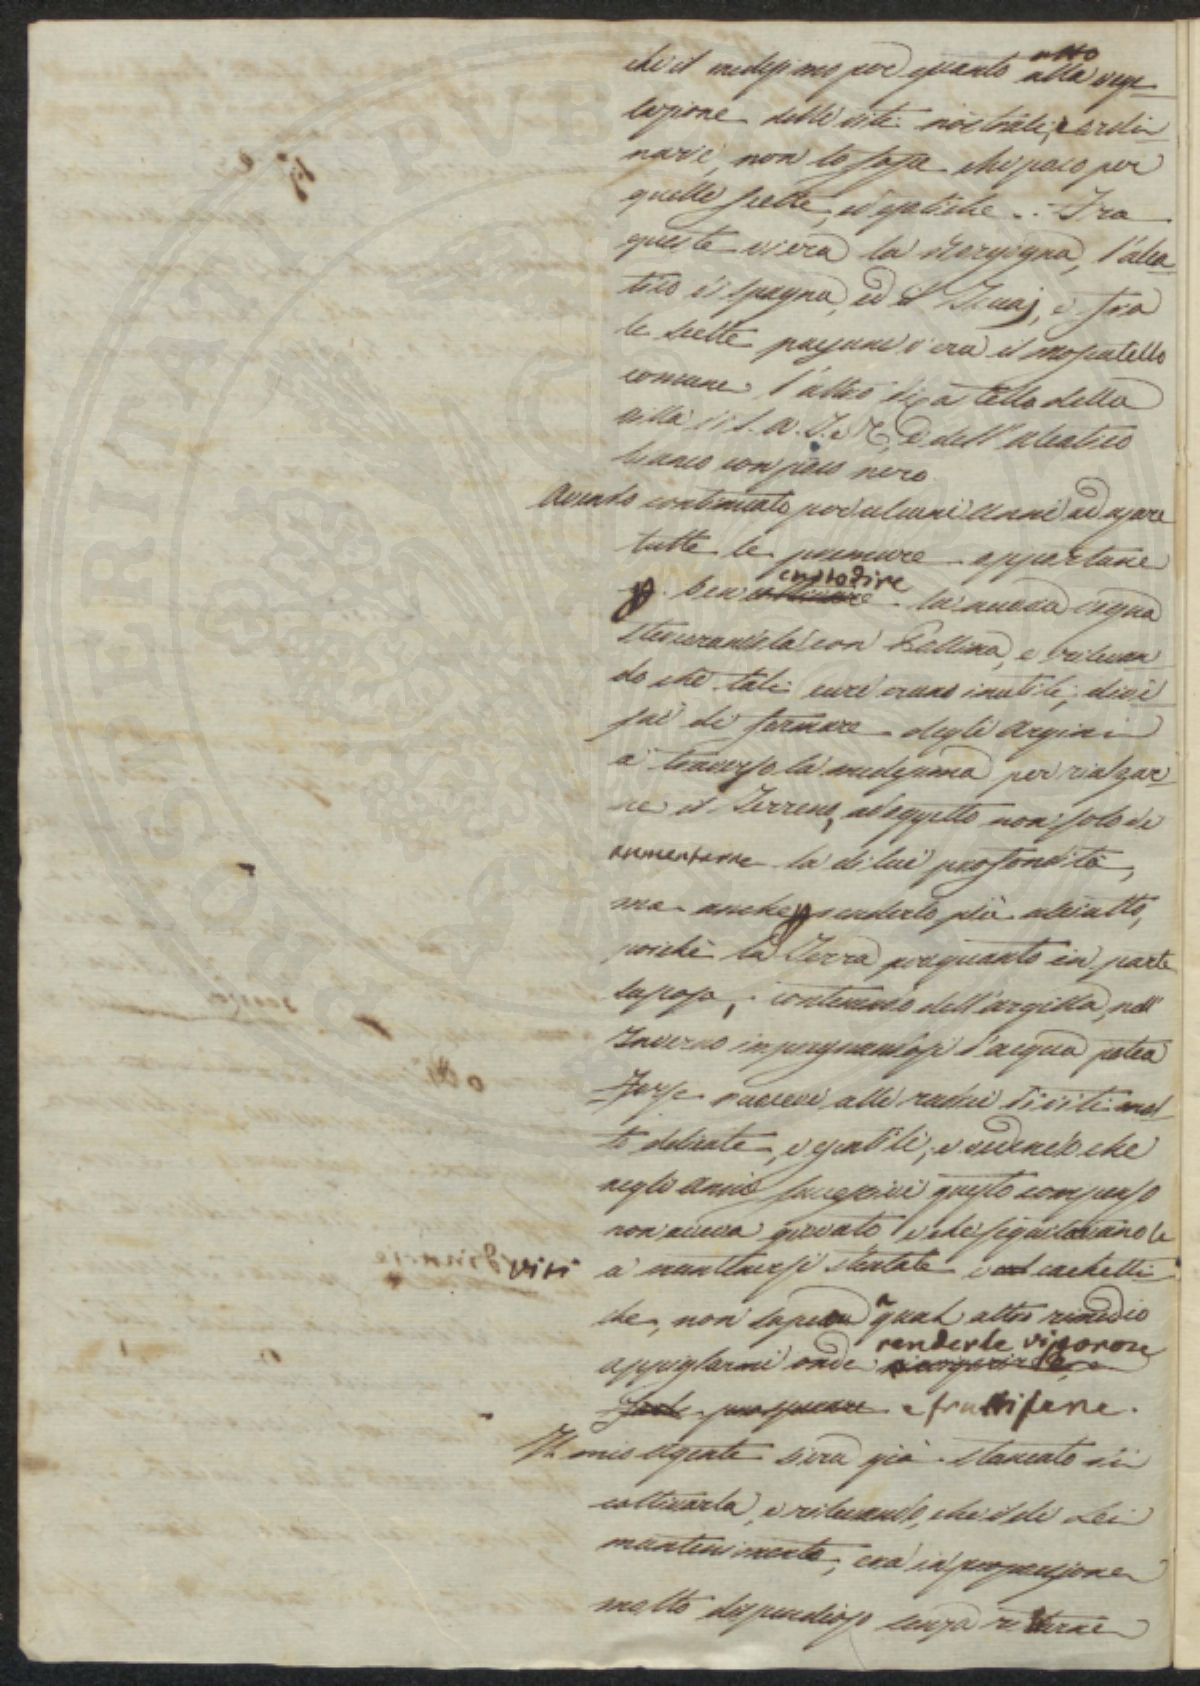 che il medesimo per quanto atto alla vege-
tazione delle viti nostrali, e ordi-
narie, non lo fosse che poco per
quelle scelte, ed esotiche. Fra
queste vi era la Borgogna, l'alea-
tico di Spagna, ed il Tocaj, e fra
le scelte paesane v'era il moscatello
comune, l'altro di a tello della
villa di S. A. I. e R., e dell'aleatico
bianco con poco nero.
Avendo continuato per alcuni anni ad usare
tutte le premure opportune
p. ben coltivare custodire la nuova vigna
sterzandola con Collina, e rilevan-
do che tali cure erano inutili, divi-
sai di formare degli argini
a traverso la medesima per rialzar-
ne il Terreno, ad oggetto non solo di
aumentarne la di lui profondità,
ma anche p renderlo più asciutto,
poichè la Terra, per quanto in parte
sassosa, contenendo dell'argilla, nell'
Inverno impregnandosi d'acqua potea
forse nuocere alle radici di viti mol-
to delicate, e gentili; e vedendo che
negli anni successivi questo compenso
non aveva giovato e che seguitavano le
viti a mantenersi stentate e cachetti-
che, non sapea qual altro rimedio
appigliarmi onde renderle vigorose
prosperare e fruttifere.
Il mio Agente s'era già stancato di
coltivarla, e rilevando, che il di Lei
mantenimento, era in proporzione
molto dispendioso senza ritrarne